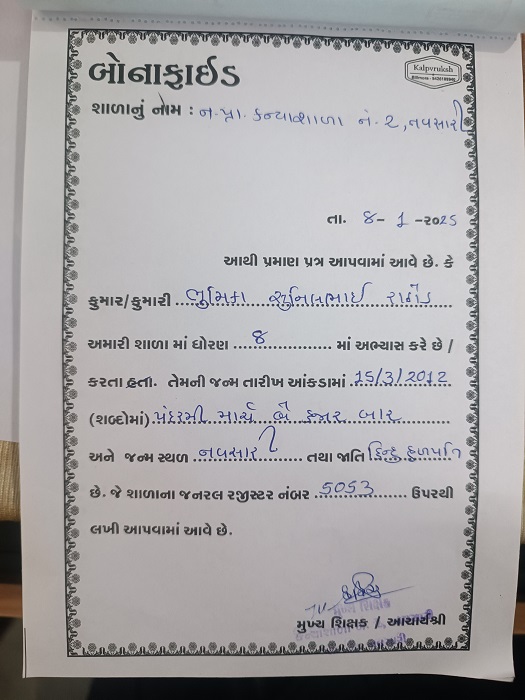 બોનાફાઈડ
Kalpvruksh
શાળાનું નામ : ન.પ્રા. કન્યાશાળા નં. 2, નવસારી
તા. 8- 1 -૨૦25
આથી પ્રમાણ પત્ર આપવામાં આવે છે. કે
કુમાર/કુમારી ભુમિકા સુનિલભાઈ રાઠોડ
અમારી શાળા માં ધોરણ 8 માં અભ્યાસ કરે છે /
કરતા હતા. તેમની જન્મ તારીખ આંકડામાં 15/3/2012
(શબ્દોમાં) પંદરમી માર્ચ બે હજાર બાર
અને જન્મ સ્થળ નવસારી તથા જાતિ હિન્દુ હળપતિ
છે. જે શાળાના જનરલ રજીસ્ટર નંબર 5053 ઉપરથી
લખી આપવામાં આવે છે.
મુખ્ય શિક્ષક
મુખ્ય શિક્ષક / આચાર્યશ્રી